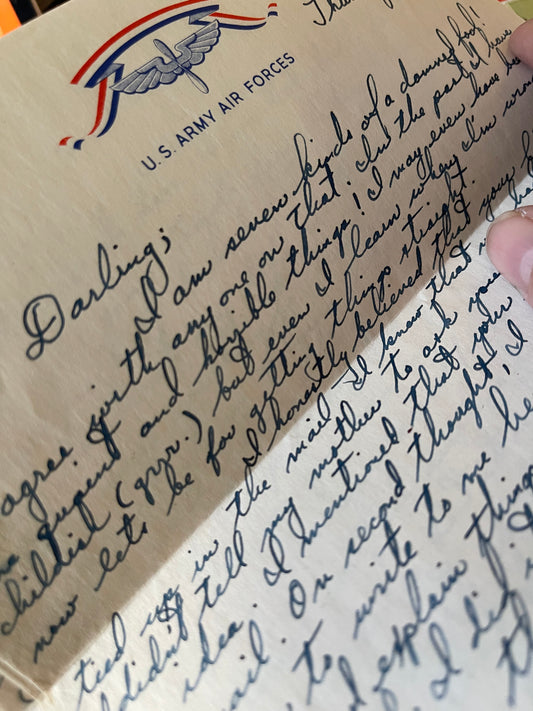 Thu
U.S. ARMY AIR FORCES
Darling;
I am seven kinds of a damned fool!
agree with any one on that. In the past I have
stupid and horrible things! I may even have be
childish (grrr.) but even I learn when I'm wron
now lets be for getting things straight.
I honestly believed that your
tied up in the mail. I know that
didn't tell my mother to ask you
idea. I mentioned that your
mail. On second thought, I
to write to me
explain things
I did
th